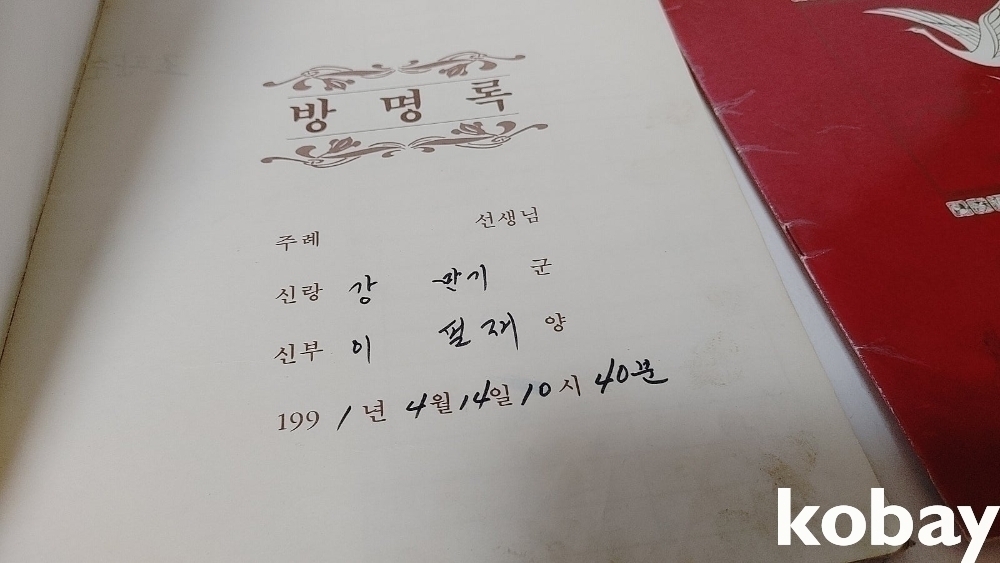 방 명 록
주례 선생님
신랑 강 만기 군
신부 이 필재 양
1991년 4월 14일 10시 40분
kobay